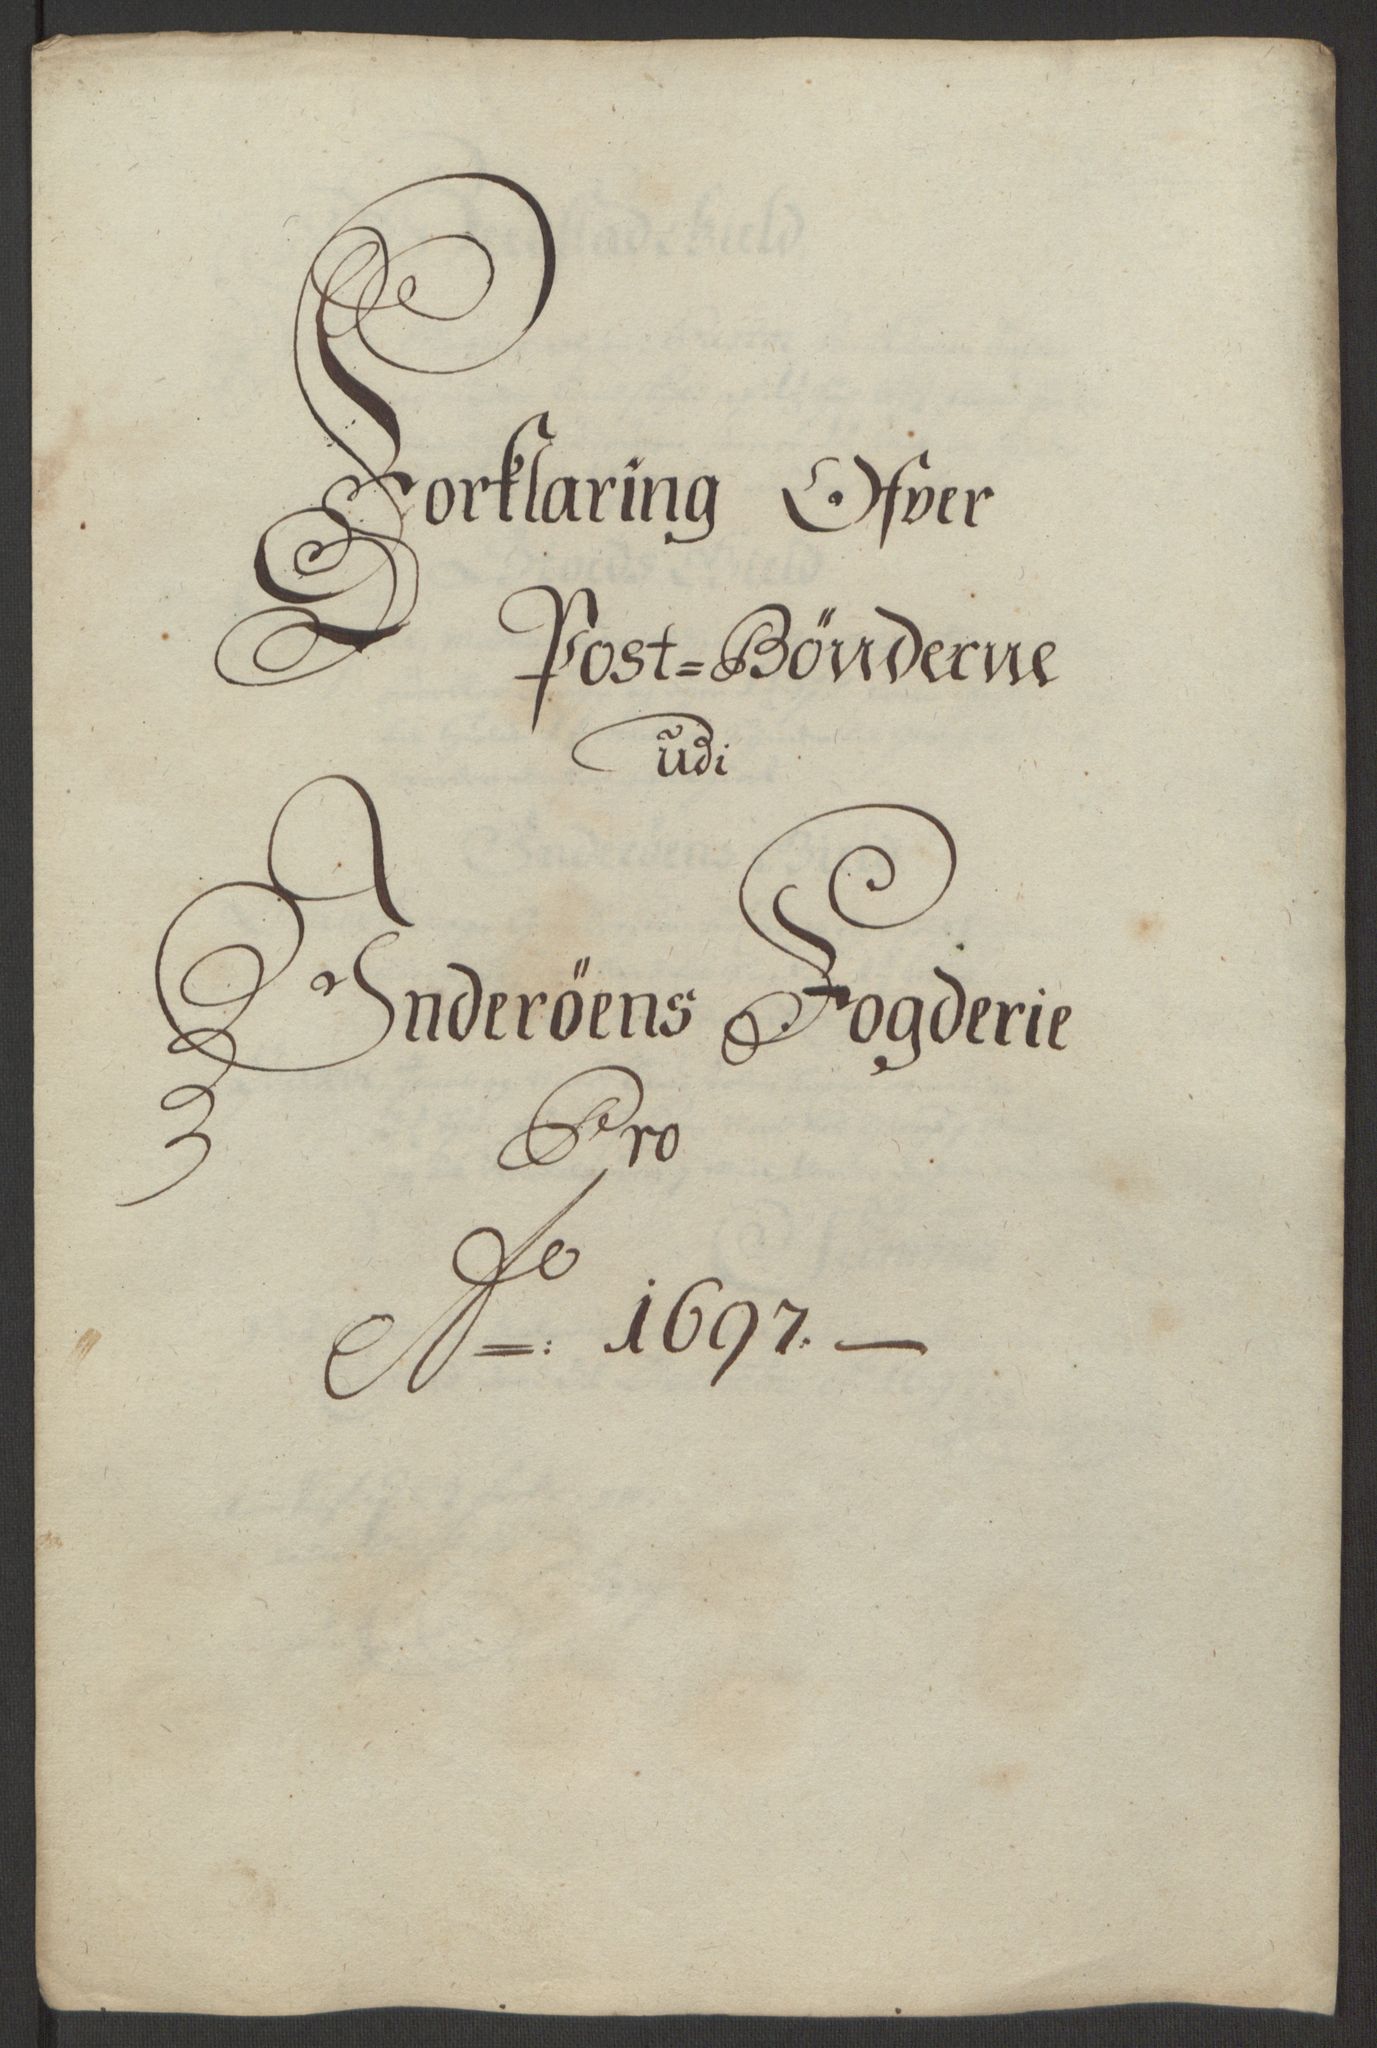 Forklaring Ofver
Post=Bönderne
udi
Inderöens Fogderie
Pro
Ao=: 1697. —